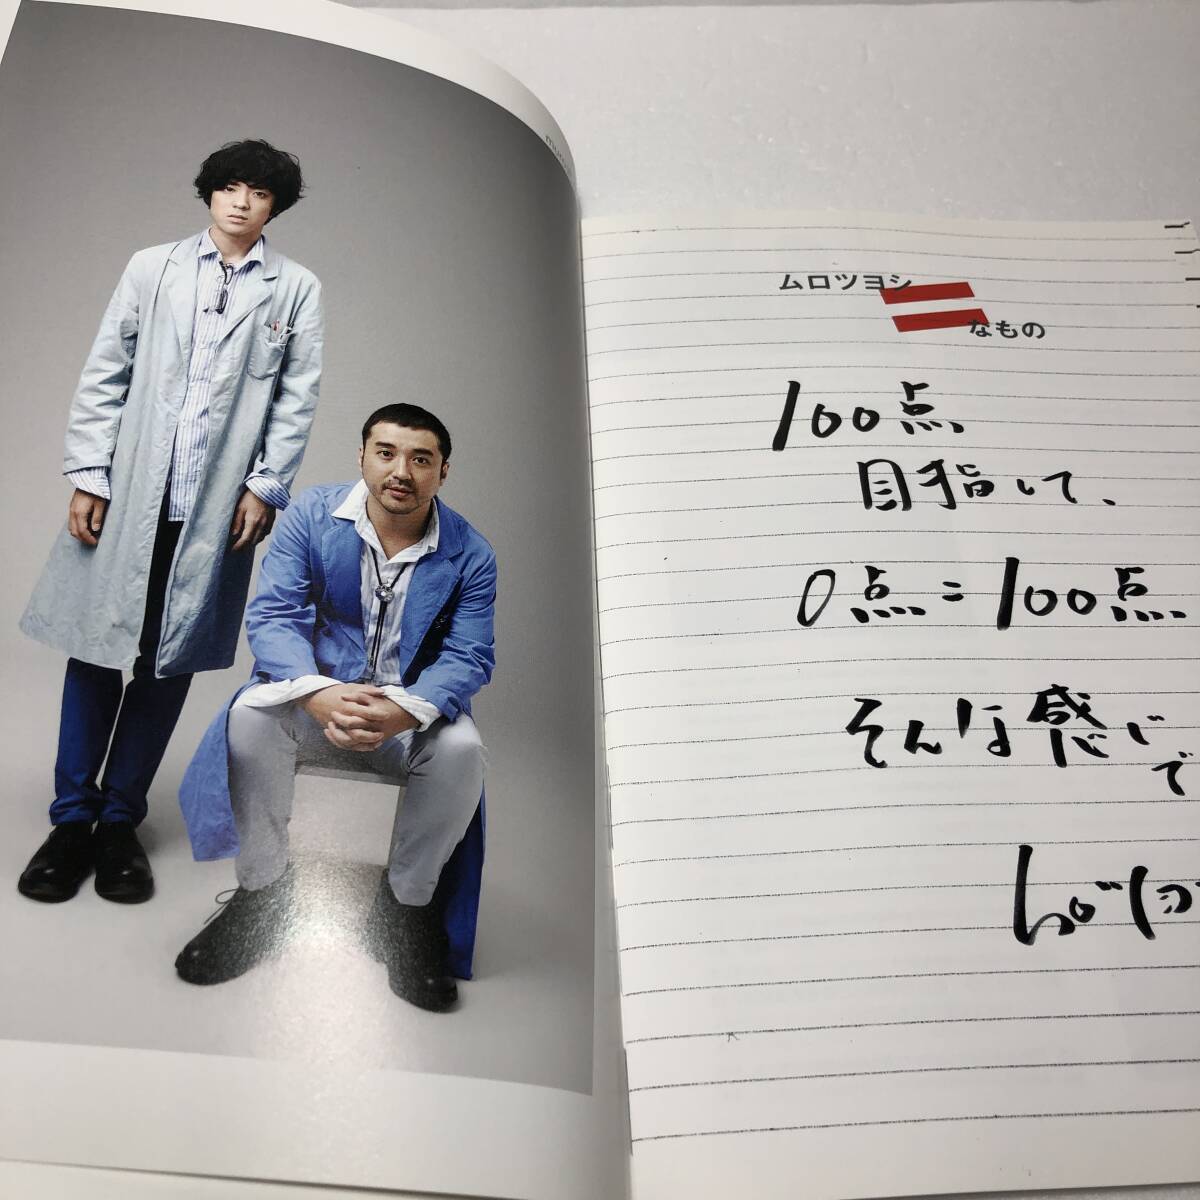 ムロツヨシ
=
なもの
100点
目指して、
0点=100点
そんな感じ
で